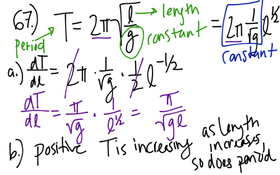 67.) T = 2π √(l/g) → length = 2π 1/√g l^1/2
period constant constant
a.) dT/dl = 2π · 1/√g · 1/2 l^-1/2
dT/dl = π/√g · 1/l^1/2 = π/√gl
b.) positive T is increasing as length increases so does period